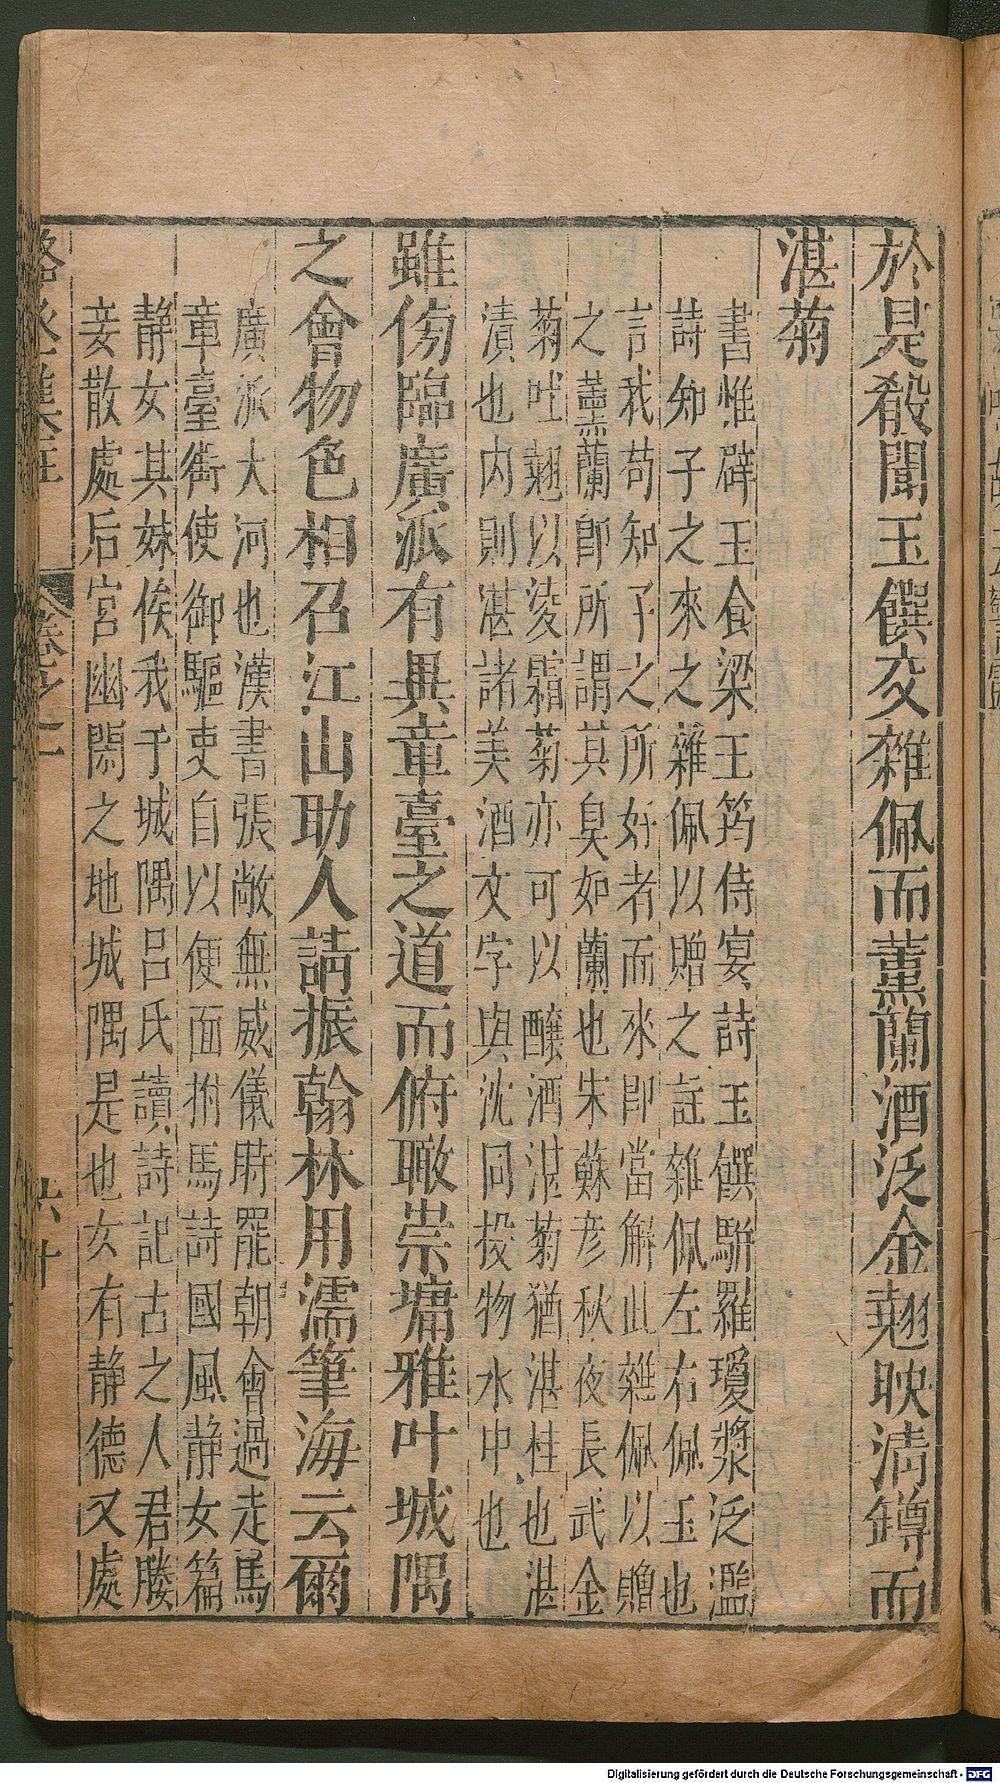 於是殽聞玉饌交雜佩而薰蘭酒泛金翹映清鐏而
湛菊
書惟辟玉食梁王筠侍宴詩玉饌駢羅瓊漿泛濫
詩知子之來之雜佩以贈之註雜佩左右佩玉也
言我苟知子之所好者而來即當解此雜佩以贈
之薰蘭即所謂其臭如蘭也朱蘇彦秋夜長武金
菊吐翹以淩霜菊亦可以釀酒湛菊猶湛桂也湛
漬也内則湛諸美酒文字與沈同投物水中也
雖傍臨廣派有異章臺之道而俯瞰崇墉雅叶城隅
之會物色相召江山助人請振翰林用濡筆海云爾
廣派大河也漢書張敞無威儀時罷朝會過走馬
章臺街使御驅吏自以便面拊馬詩國風静女篇
静女其姝俟我于城隅吕氏讀詩記古之人君媵
妾散處后宮幽閑之地城隅是也女有静德又處
卷之一 六十
Digitalisierung gefördert durch die Deutsche Forschungsgemeinschaft - DFG